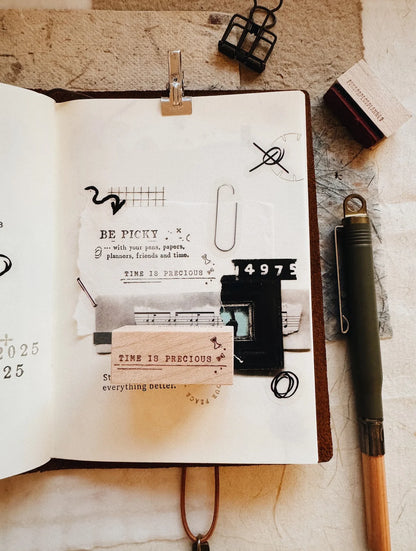 2025
25
BE PICKY
··· with your pens, papers,
planners, friends and time.
TIME IS PRECIOUS
14975
TIME IS PRECIOUS
St
everything better.
PEACE